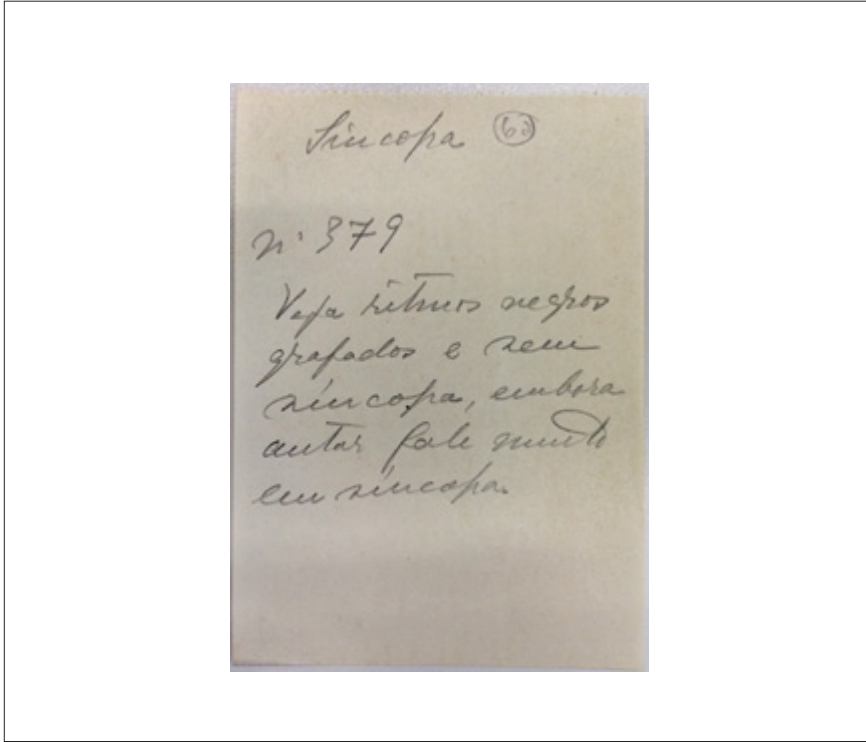 Síncopa 60
nº 379
Veja ritmos negros
grafados e sem
síncopa, embora
autor fale muito
em síncopa.